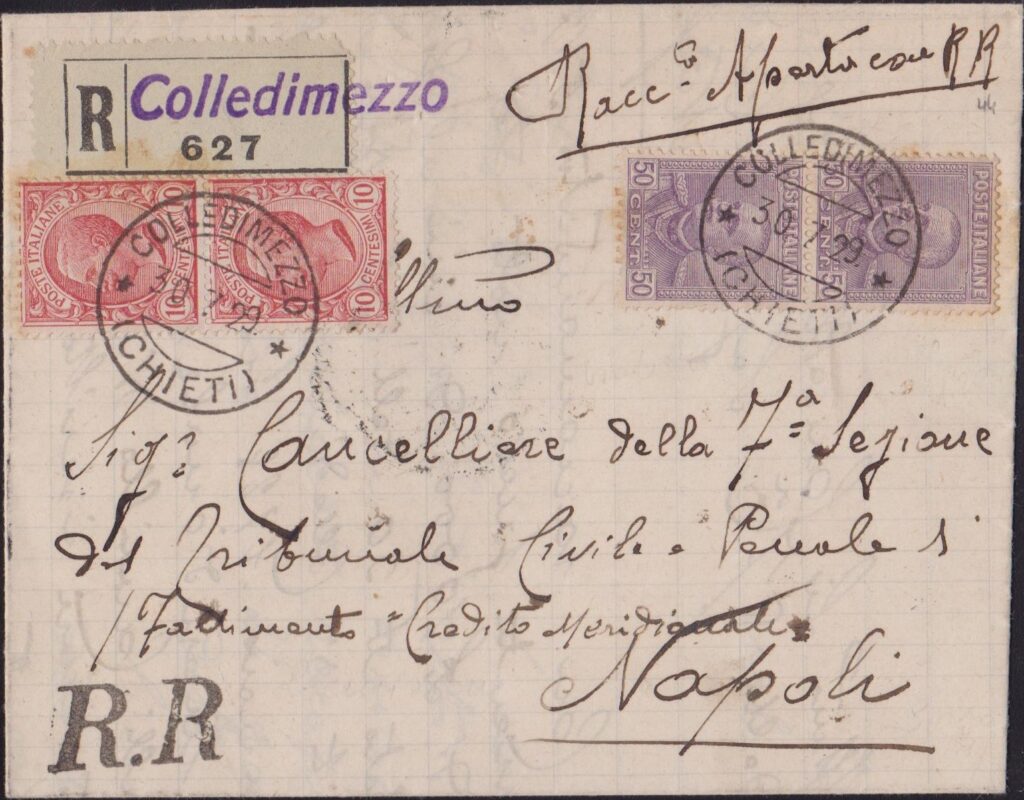 R Colledimezzo
627
Racc.e Aperta con RR
44
POSTE ITALIANE 10 CENTESIMI 10
POSTE ITALIANE 10 CENTESIMI 10
50 CENT. 50 POSTE ITALIANE
50 CENT. 50 POSTE ITALIANE
COLLEDIMEZZO
30.7.29.
(CHIETI)
COLLEDIMEZZO
30.7.29.
(CHIETI)
Sigr Cancelliere della 7a Sezione
del Tribunale Civile e Penale di
/Fallimento "Credito Meridionale"
Napoli
R.R